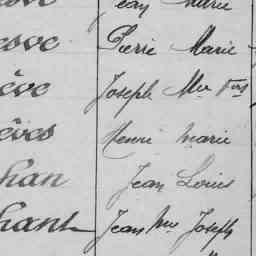 Jean Marie
esve Pierre Marie
ève Joseph Mie Frs
èves Henri Marie
han Jean Louis
hant Jean Mie Joseph